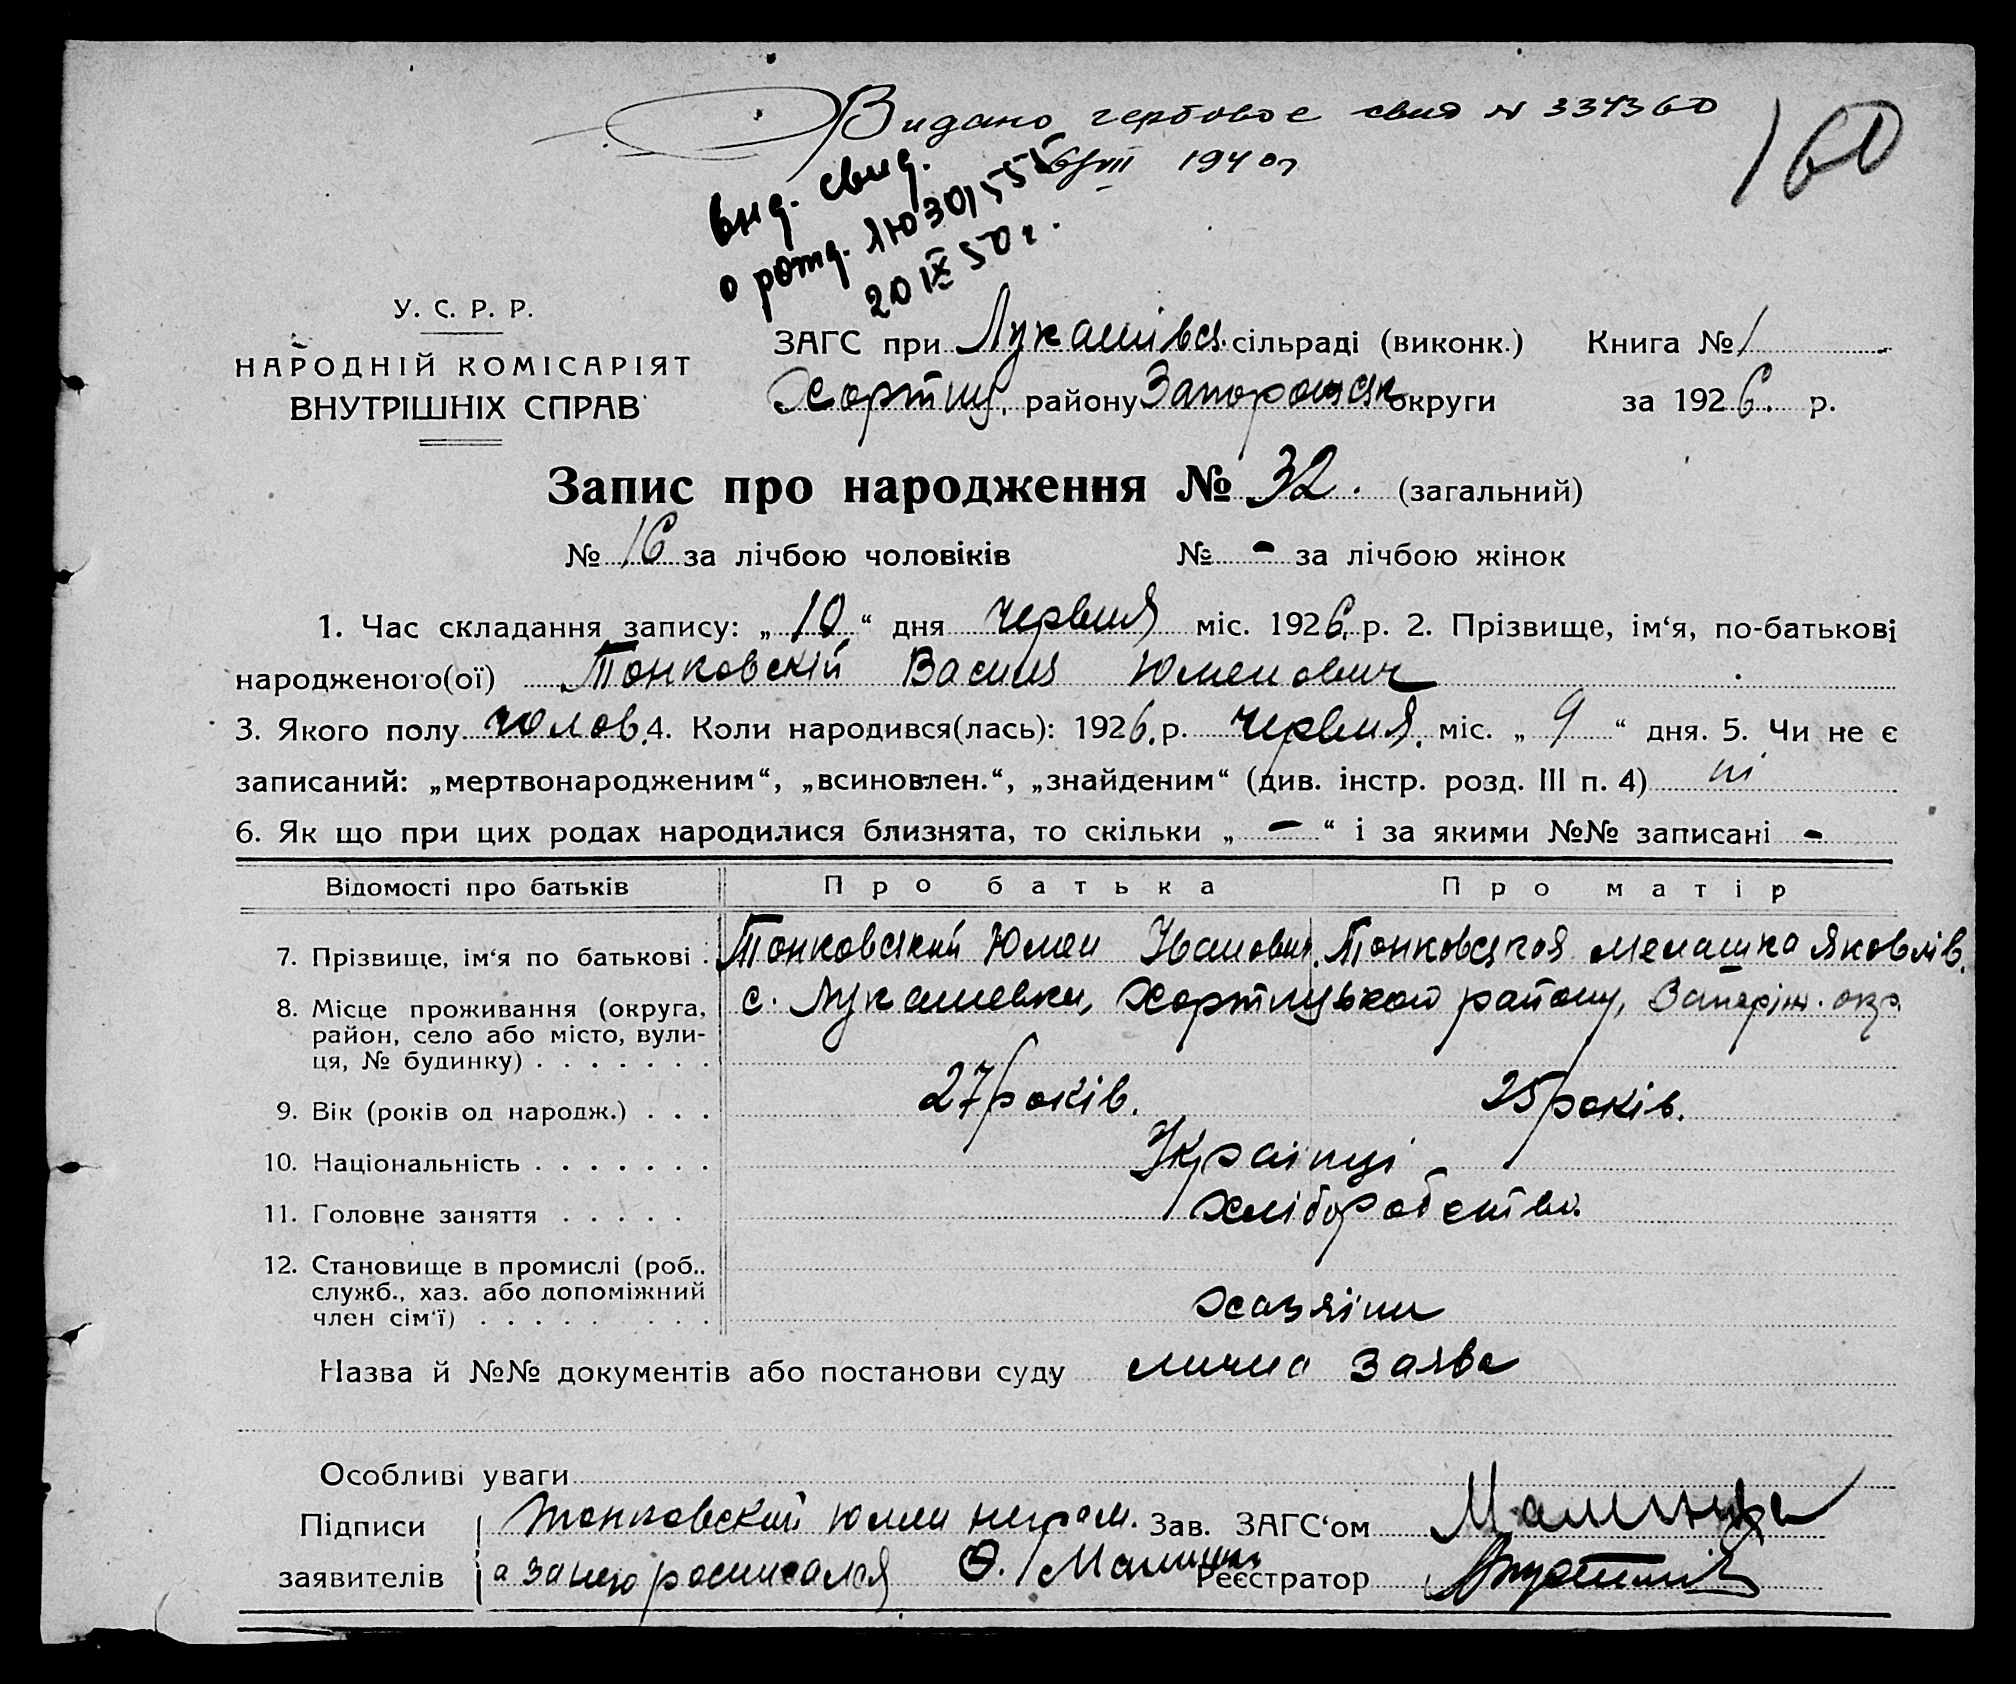 Видано гербовое свид N 334360
6/III 1940 г
160
вид. свид.
о рожд. ЯЮ 301555
20 IX 50 г.
У. С. Р. Р.
НАРОДНІЙ КОМІСАРІЯТ
ВНУТРІШНІХ СПРАВ
ЗАГС при Лукашівск. сільраді (виконк.) Книга № 1
Хортиц. району Запорожск округи за 1926. р.
Запис про народження № 32. (загальний)
№ 16 за лічбою чоловіків № - за лічбою жінок
1. Час складання запису: „ 10 “ дня червня міс. 1926. р. 2. Прізвище, ім‘я, по-батькові
народженого(ої) Тонковскій Василь Юменович
3. Якого полу чолов. 4. Коли народився(лась): 1926. р. червня. міс. „ 9 “ дня. 5. Чи не є
записаний: „мертвонародженим“, „всиновлен.“, „знайденим“ (див. інстр. розд. III п. 4) ні
6. Як що при цих родах народилися близнята, то скільки „ - “ і за якими №№ записані -
Відомості про батьків Про батька Про матір
7. Прізвище, ім‘я по батькові : Тонковский Юмен Иванович. Тонковская Мелашка Яковлів.
8. Місце проживання (округа, с. Лукашевки, Хортицького району, Запоріж. окр.
район, село або місто, вули-
ця, № будинку) . . . . . . .
9. Вік (років од народж.) . . . 27 років. 25 років.
10. Національність . . . . . . . Українці
11. Головне заняття . . . . . хліборобство.
12. Становище в промислі (роб..
служб., хаз. або допоміжний
член сім‘ї) . . . . . . . . . хазяіни
Назва й №№ документів або постанови суду лична заява
Особливі уваги
Підписи Тонковский Юмен неграм. Зав. ЗАГС‘ом
заявителів а за него росписался Реєстратор